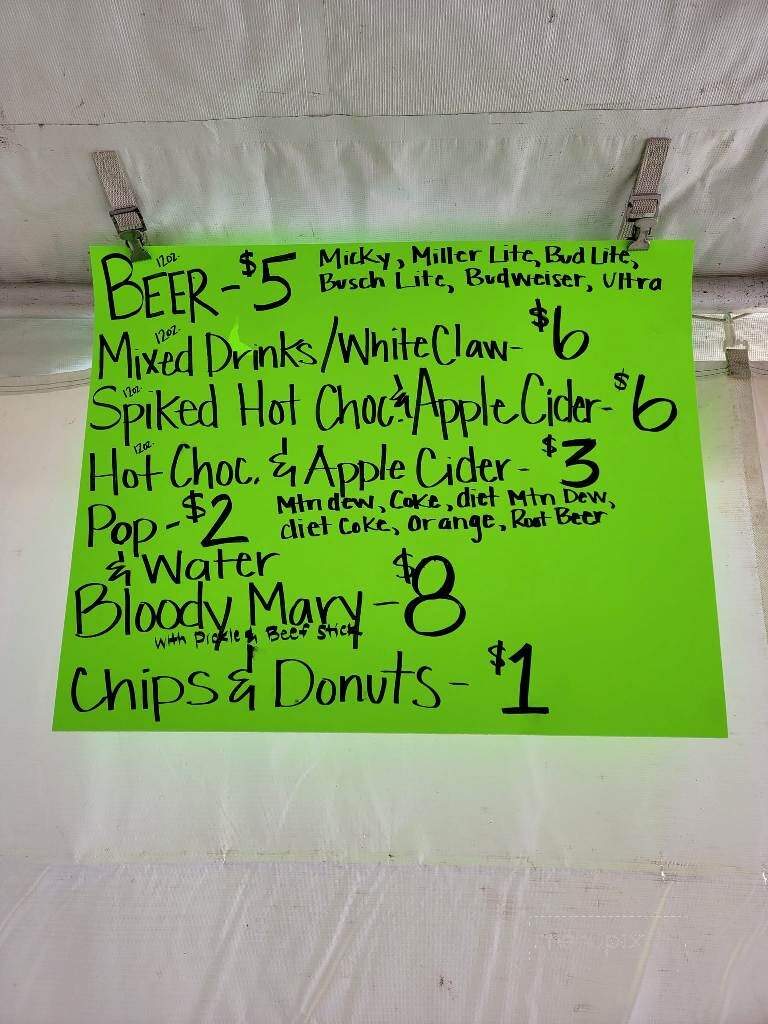 12oz.
BEER - $5 Micky, Miller Lite, Bud Lite,
Busch Lite, Budweiser, Ultra
12oz.
Mixed Drinks/White Claw - $6
12oz.
Spiked Hot Choc. & / Apple Cider - $6
12oz.
Hot Choc. & Apple Cider - $3
Pop - $2 Mtn dew, Coke, diet Mtn Dew,
diet Coke, Orange, Root Beer
& Water
Bloody Mary - $8
with Pickle & Beef Stick
Chips & Donuts - $1